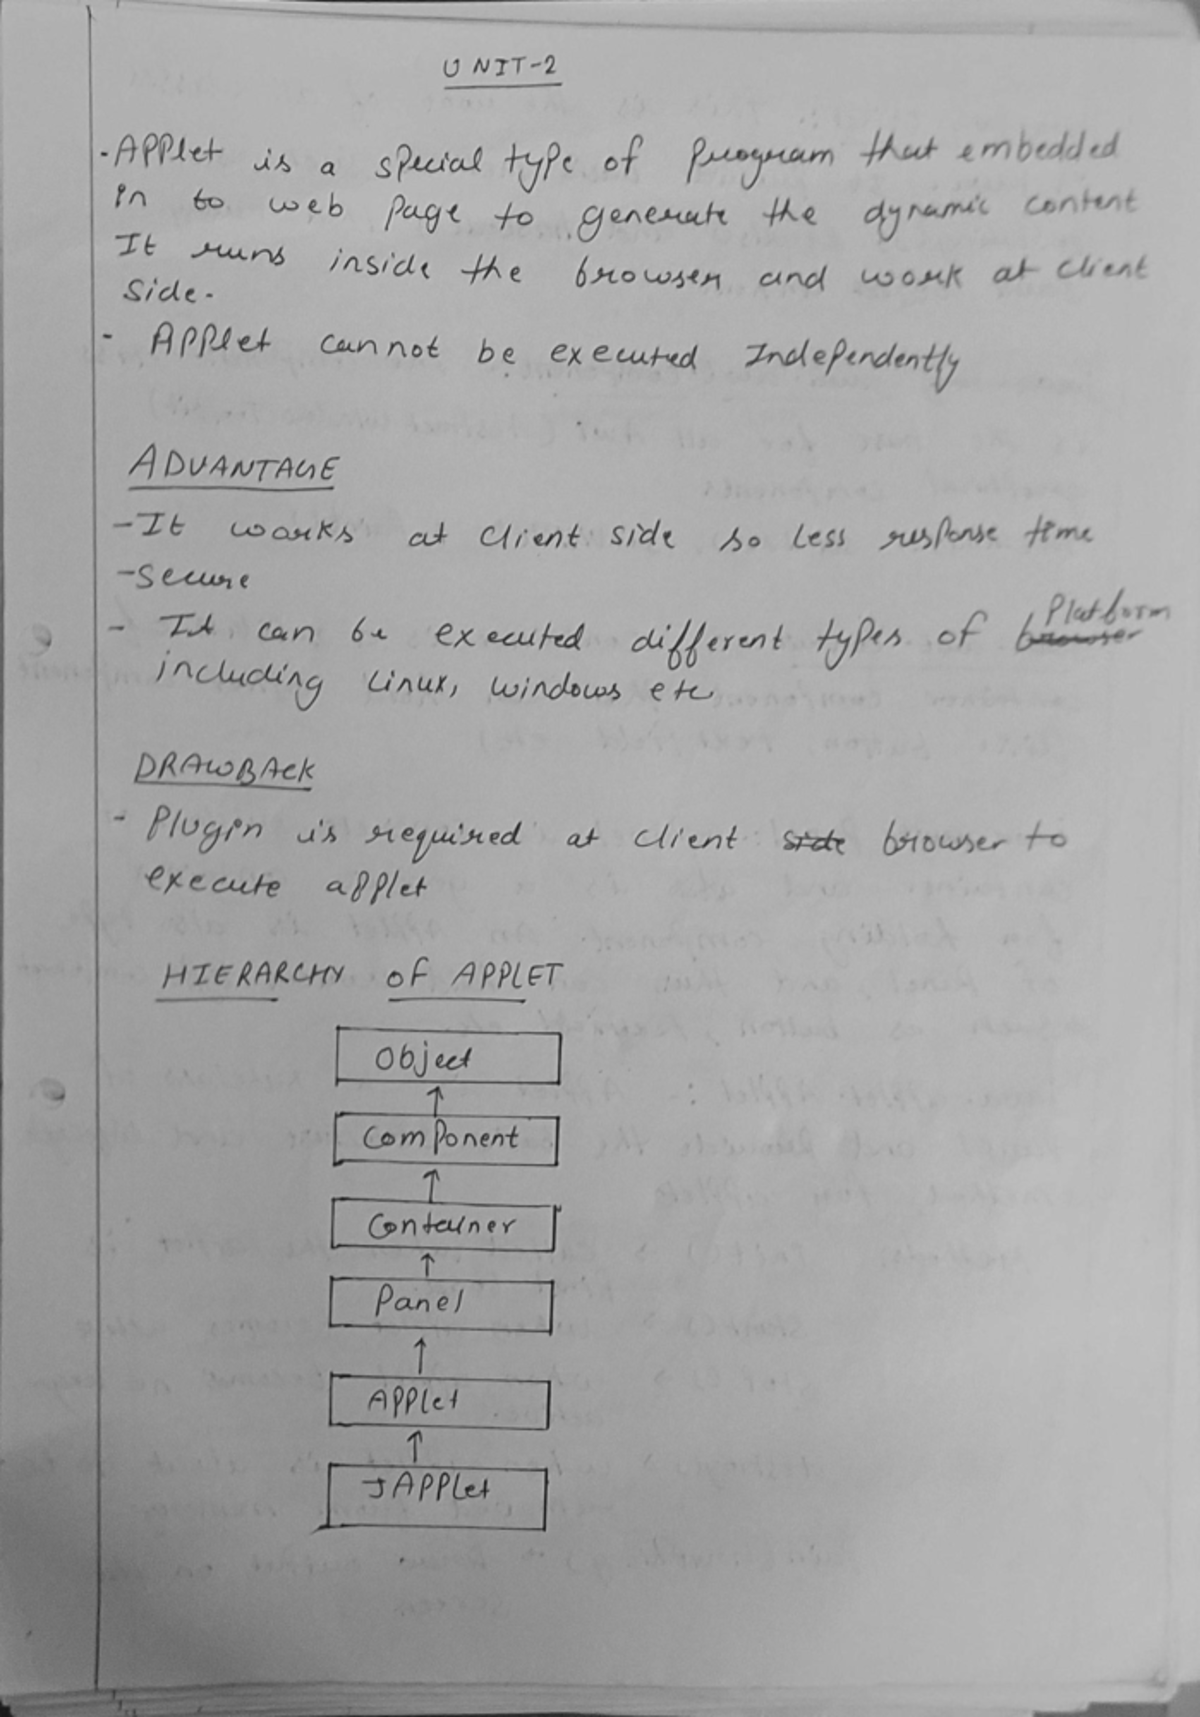 UNIT-2
- Applet is a special type of program that embedded
in to web page to generate the dynamic content
It runs inside the browser and work at client
side.
- Applet cannot be executed Independently
ADVANTAGE
- It works at client side so less response time
- Secure
- It can be executed different types of browser Platform
including Linux, windows etc
DRAWBACK
- Plugin is required at client side browser to
execute applet
HIERARCHY of APPLET
Object
Component
Container
Panel
Applet
JApplet